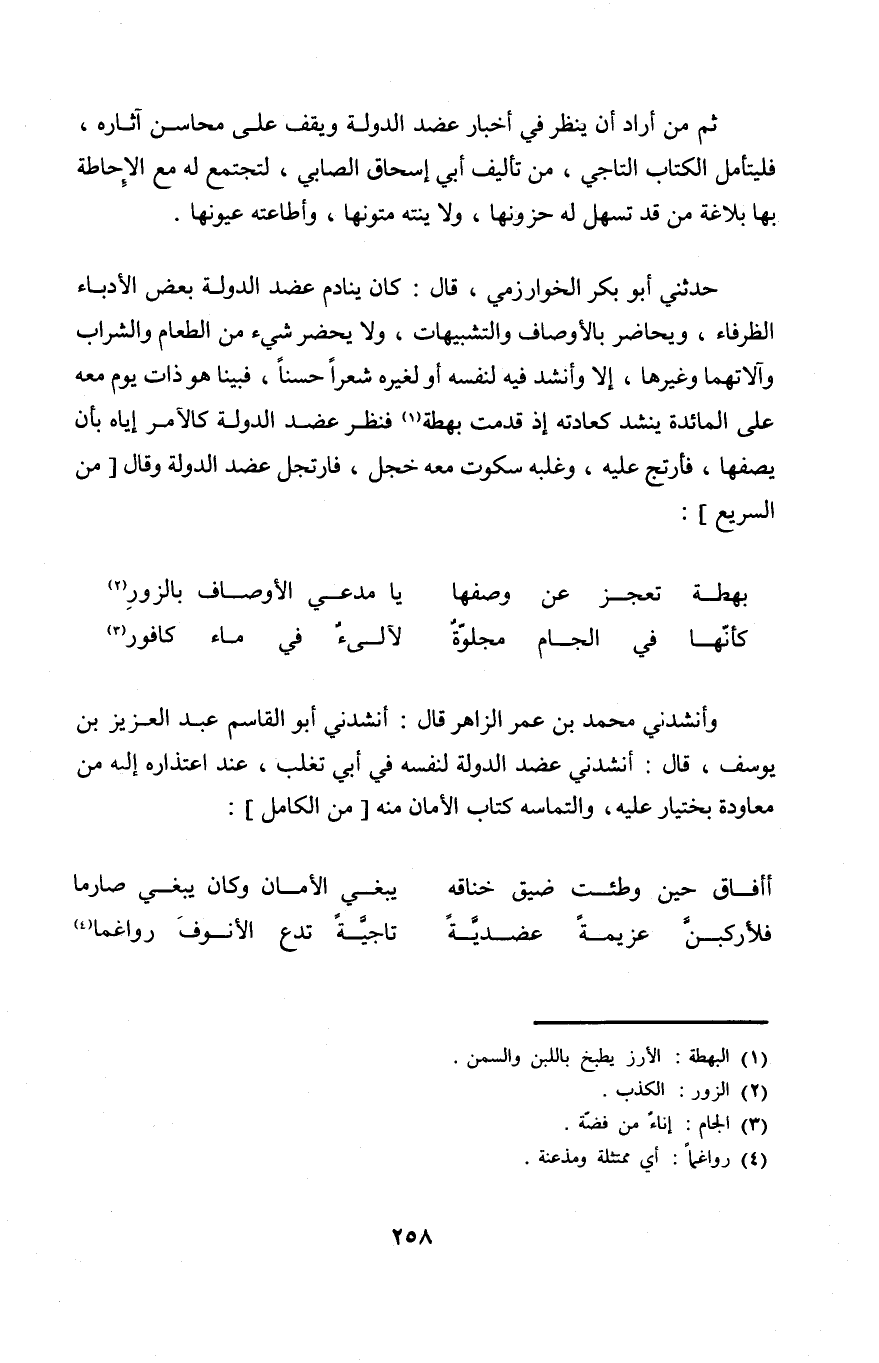 ثم من أراد أن ينظر في أخبار عضد الدولة ويقف على محاسن آثاره ،
فليتأمل الكتاب التاجي ، من تأليف أبي إسحاق الصابي ، لتجتمع له مع الإحاطة
بها بلاغة من قد تسهل له حزونها ، ولا ينته متونها ، وأطاعته عيونها .
حدثني أبو بكر الخوارزمي ، قال : كان ينادم عضد الدولة بعض الأدباء
الظرفاء ، ويحاضر بالأوصاف والتشبيهات ، ولا يحضر شيء من الطعام والشراب
وآلاتهما وغيرها ، إلا وأنشد فيه لنفسه أو لغيره شعراً حسناً ، فبينا هو ذات يوم معه
على المائدة ينشد كعادته إذ قدمت بهطة(١) فنظر عضد الدولة كالآمر إياه بأن
يصفها ، فأرتج عليه ، وغلبه سكوت معه خجل ، فارتجل عضد الدولة وقال [ من
السريع ] :
بهطة تعجز عن وصفها يا مدعي الأوصاف بالزورِ(٢)
كأنّها في الجام مجلوّةٌ لآلىءٌ في ماء كافور(٣)
وأنشدني محمد بن عمر الزاهر قال : أنشدني أبو القاسم عبد العزيز بن
يوسف ، قال : أنشدني عضد الدولة لنفسه في أبي تغلب ، عند اعتذاره إله من
معاودة بختيار عليه، والتماسه كتاب الأمان منه [ من الكامل ] :
أأفاق حين وطئت ضيق خناقه يبغي الأمان وكان يبغي صارما
فلأركبنَّ عزيمةً عضديَّةً تاجيَّةً تدع الأنوفَ رواغما(٤)
(١) البهطة : الأرز يطبخ باللبن والسمن .
(٢) الزور : الكذب .
(٣) الجام : إناءٌ من فضّة .
(٤) رواغماً : أي ممتثلة ومذعنة .
٢٥٨